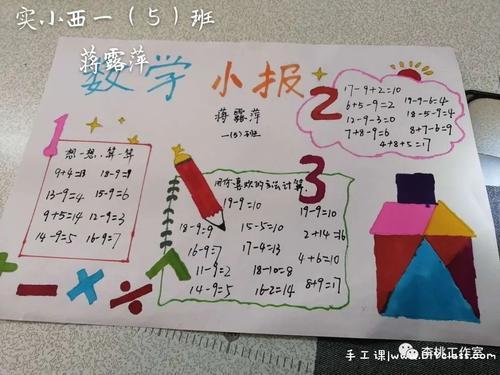 实小西一（5）班
蒋露萍
数学 小报
蒋露萍
一(5)班
1
想一想,算一算
9+4=13 18-9=9
13-9=4 15-9=6
9+5=14 12-9=3
14-9=5 16-9=7
2
17-9+2=10
6+5-9=2 19-9-6=4
12-9-3=0 18-5-9=4
7+8-9=6 8+7-6=9
4+8+5=17
3
用你喜欢的方法计算.
19-9=10 19-9=10
18-9=9 15-5=10 2+14=16
16-9=7 17-4=13 4+6=10
11-9=2 18-10=8 8+9=17
14-9=5 16-2=14
李桃工作室
手工课|www.DIYclass.com